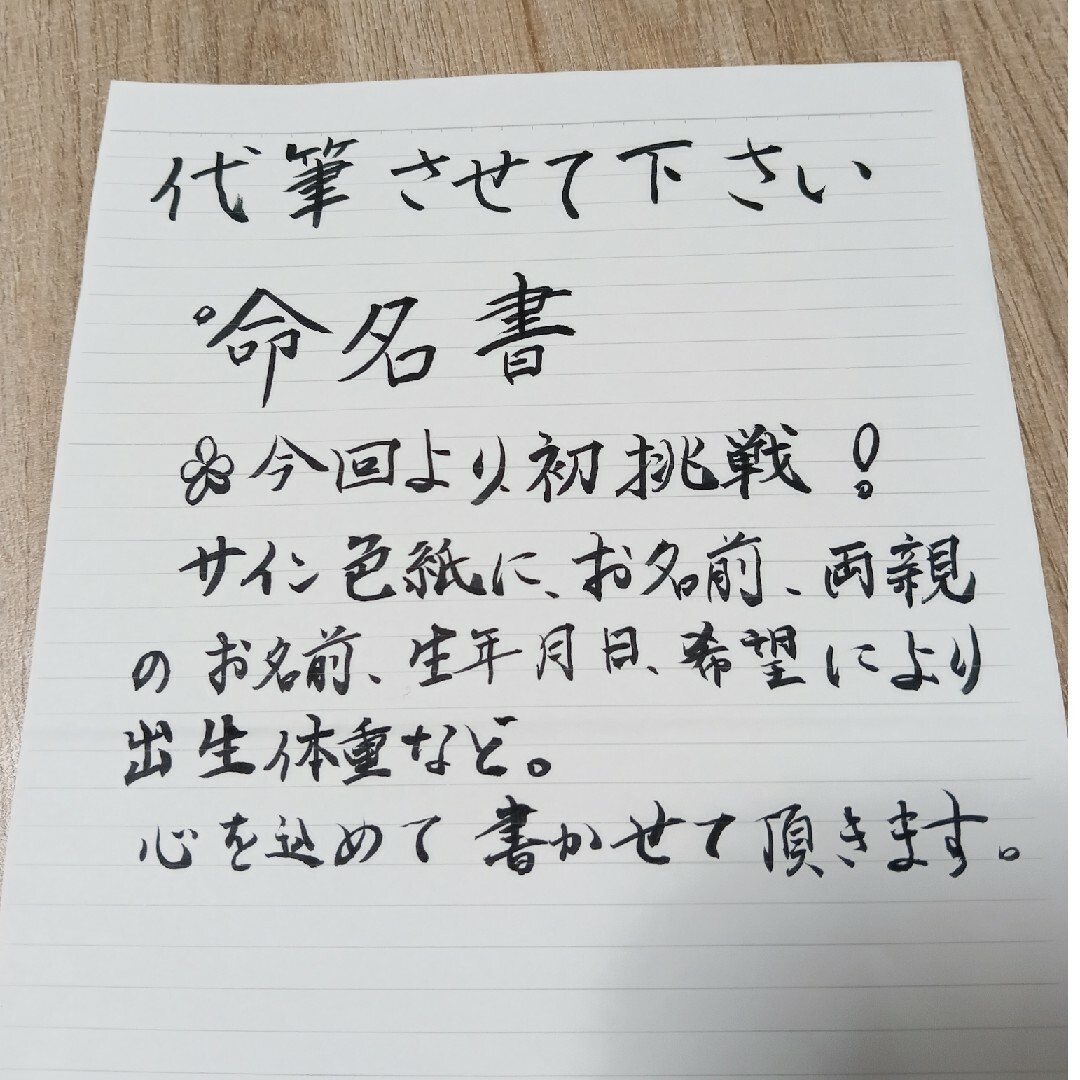 代筆させて下さい
°命名書
今回より初挑戦!
サイン色紙に、お名前、両親
のお名前、生年月日、希望により
出生体重など。
心を込めて書かせて頂きます。